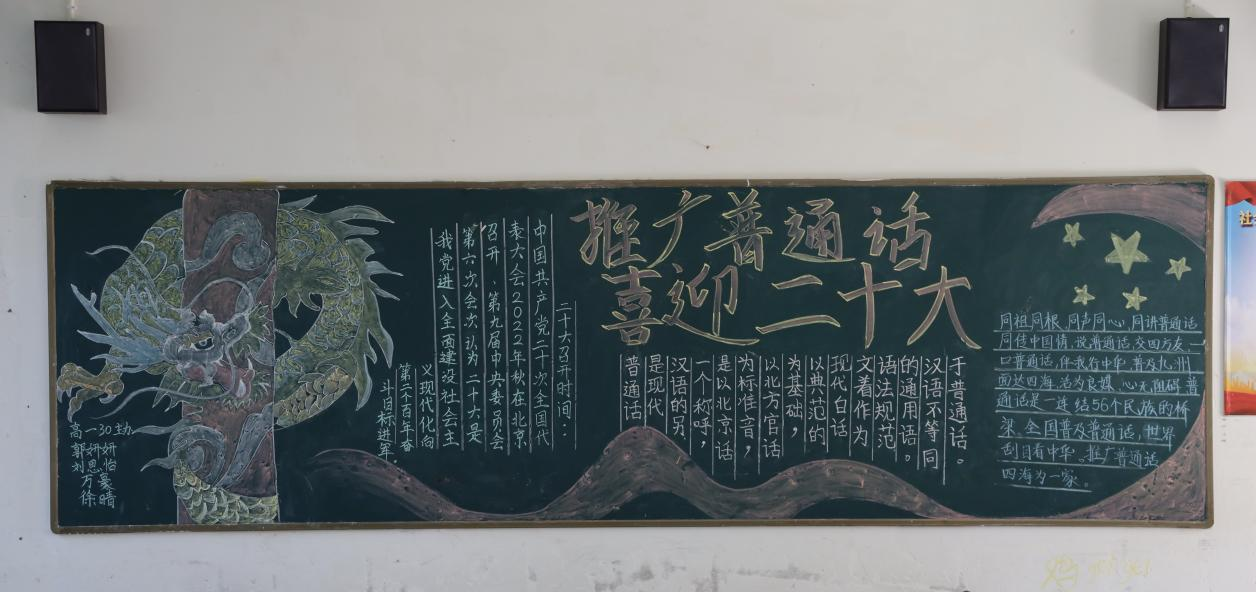 推广普通话
喜迎二十大
二十大召开时间：
中国共产党二十次全国代
表大会2022年秋在北京
召开.第九届中央委员会
第六次会议认为二十大是
我党进入全面建设社会主
义现代化向
第二个百年奋
斗目标进军.
普通话
是现代
汉语的另
一个称呼，
是以北京话
为标准音，
以北方官话
为基础，
以典范的
现代白话
文着作为
语法规范
的通用语。
汉语不等同
于普通话。
同祖同根、同声同心，同讲普通话
同传中国情，说普通话，交四方友，一
口普通话，伴我行中华，普及九州
面达四海，话为良媒，心无阻碍，普
通话是一连结56个民族的桥
梁，全国普及普通话，世界
刮目看中华。推广普通话
四海为一家。
高一30主办
郭妍妍
刘思怡
万豪
徐晴
社